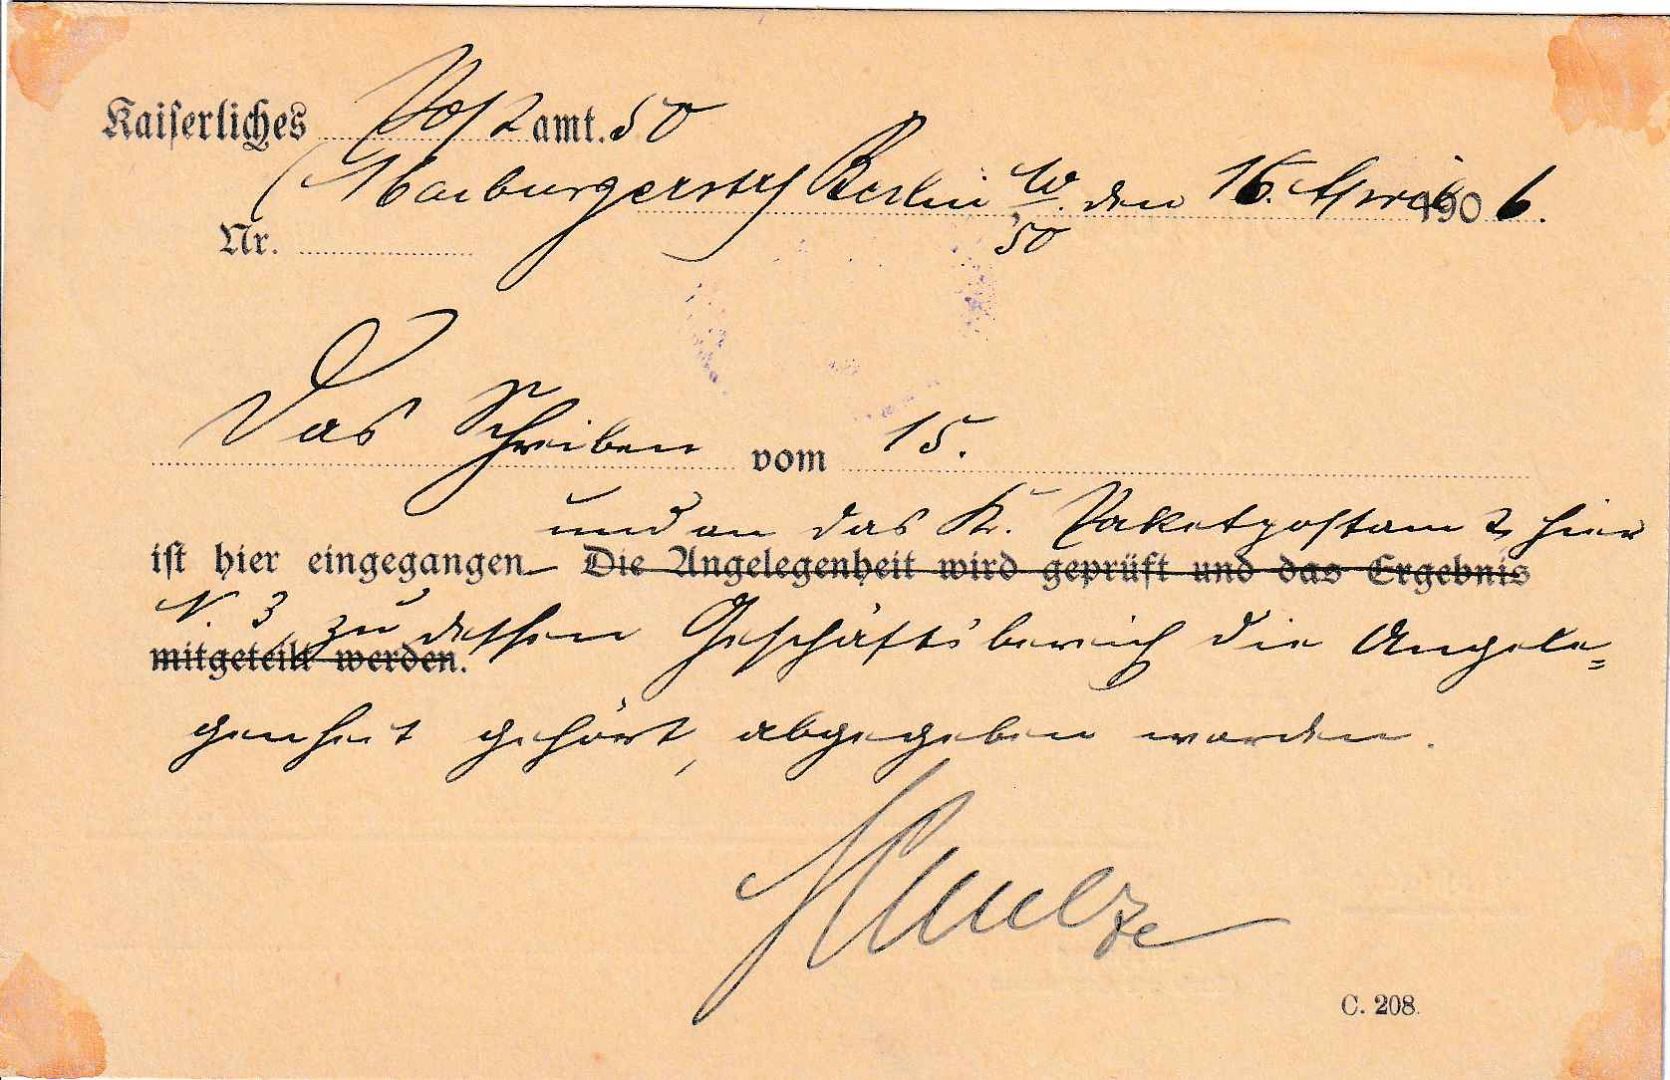 Kaiserliches Post amt. 50
(Marburgerstr) Berlin W. den 16. April 1906.
Nr. 50
Das Schreiben vom 15.
und an das K. Paketpostamt hier
ist hier eingegangen Die Angelegenheit wird geprüft und das Ergebnis
N. 3, zu dessen Geschäftsbereich die Angele=
mitgeteilt werden.
genheit gehört, abgegeben worden.
Schulze
C. 208.